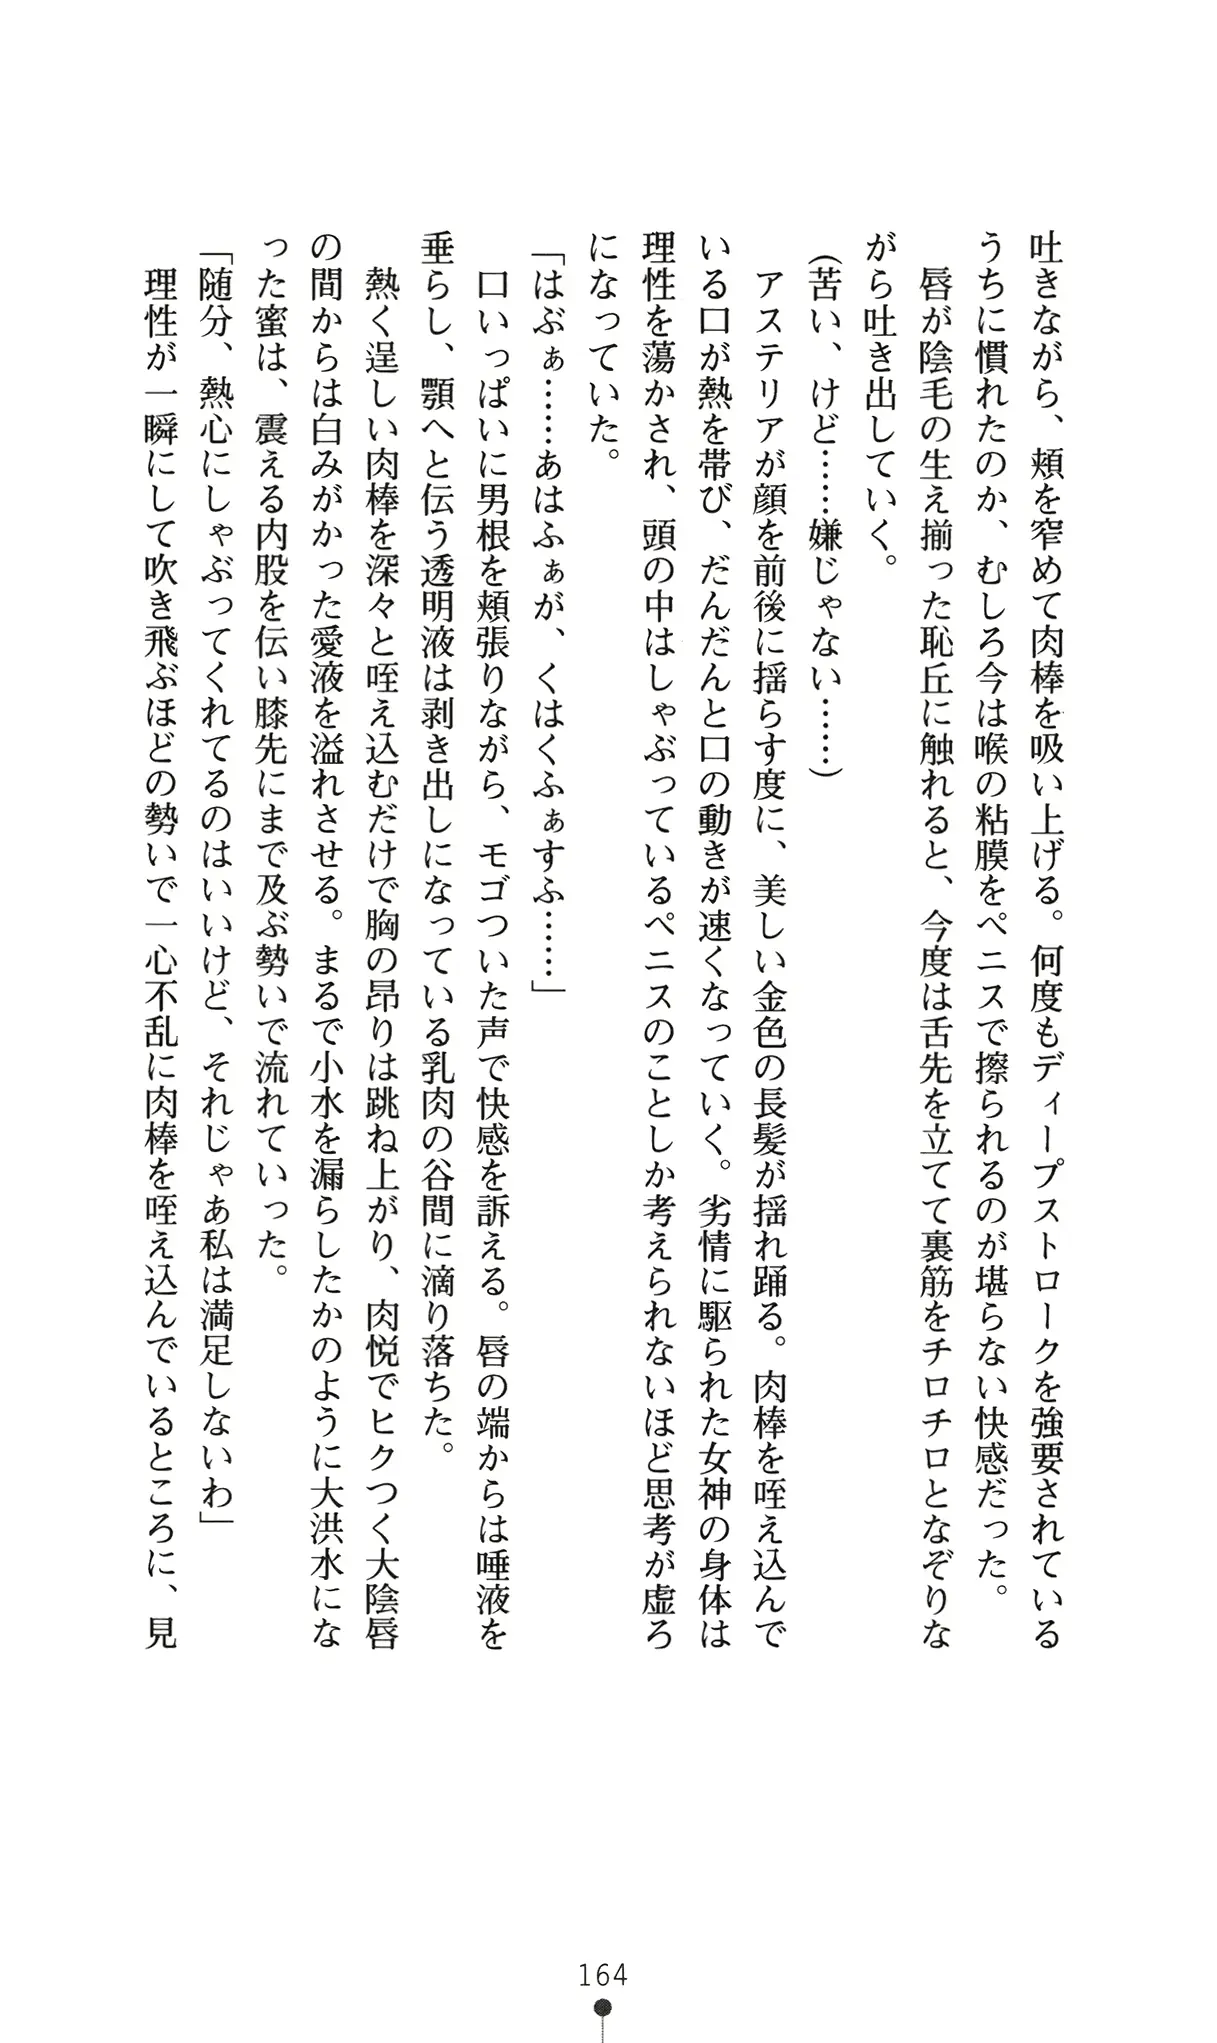 吐きながら、頬を窄めて肉棒を吸い上げる。何度もディープストロークを強要されている
うちに慣れたのか、むしろ今は喉の粘膜をペニスで擦られるのが堪らない快感だった。
唇が陰毛の生え揃った恥丘に触れると、今度は舌先を立てて裏筋をチロチロとなぞりな
がら吐き出していく。
(苦い、けど……嫌じゃない……)
アステリアが顔を前後に揺らす度に、美しい金色の長髪が揺れ踊る。肉棒を咥え込んで
いる口が熱を帯び、だんだんと口の動きが速くなっていく。劣情に駆られた女神の身体は
理性を蕩かされ、頭の中はしゃぶっているペニスのことしか考えられないほど思考が虚ろ
になっていた。
「はぶぁ……あはふぁが、くはくふぁすふ……」
口いっぱいに男根を頬張りながら、モゴついた声で快感を訴える。唇の端からは唾液を
垂らし、顎へと伝う透明液は剥き出しになっている乳肉の谷間に滴り落ちた。
熱く逞しい肉棒を深々と咥え込むだけで胸の昂りは跳ね上がり、肉悦でヒクつく大陰唇
の間からは白みがかった愛液を溢れさせる。まるで小水を漏らしたかのように大洪水にな
った蜜は、震える内股を伝い膝先にまで及ぶ勢いで流れていった。
「随分、熱心にしゃぶってくれてるのはいいけど、それじゃあ私は満足しないわ」
理性が一瞬にして吹き飛ぶほどの勢いで一心不乱に肉棒を咥え込んでいるところに、見
164